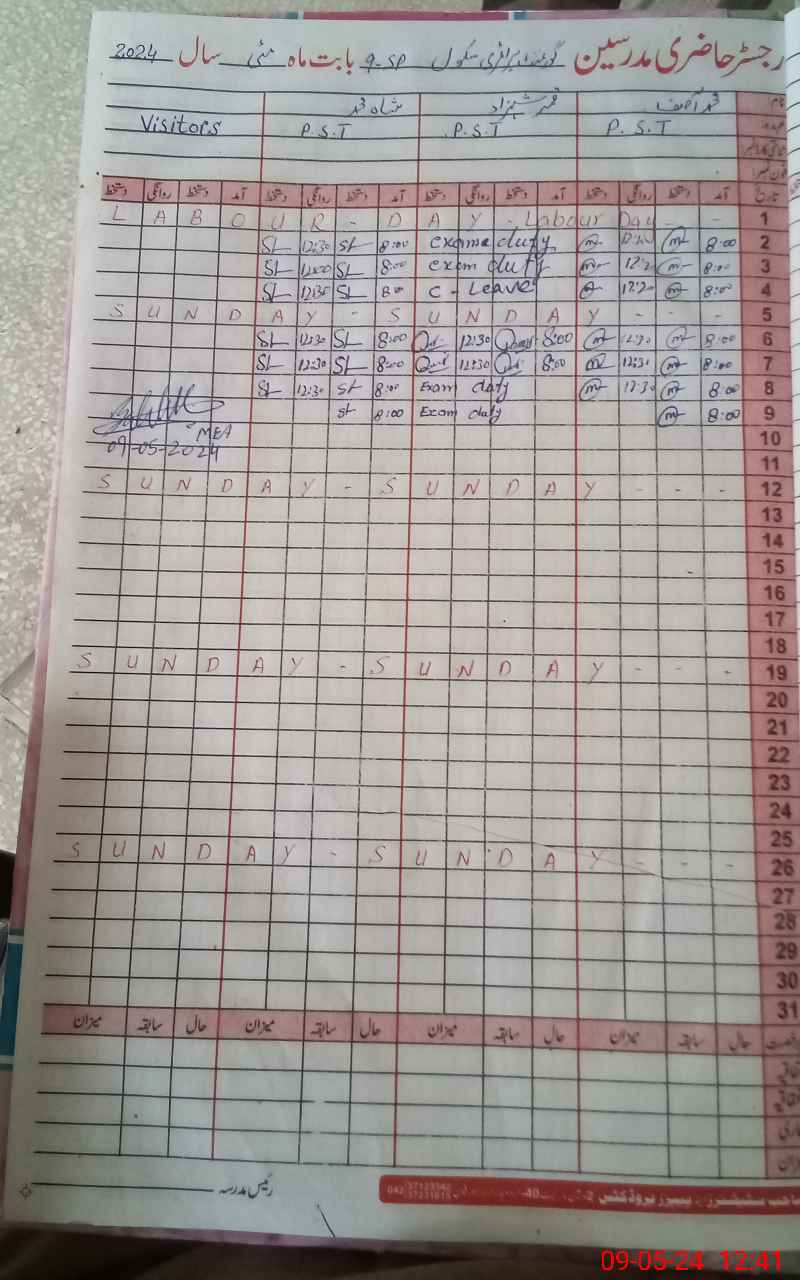 رجسٹر حاضری مدرسین گورنمنٹ پرائمری سکول 9-SP بابت ماہ مئی سال 2024
نام محمد آصف محمد شہزاد شاہ محمد
عہدہ P.S.T P.S.T P.S.T Visitors
تاریخ آمد دستخط روانگی دستخط آمد دستخط روانگی دستخط آمد دستخط روانگی دستخط آمد دستخط روانگی دستخط
L A B O U R - D A Y - Labour Day - - 1
SL 12:30 SL 8:00 duty 8:00 2
SL SL 8:00 exam duty 8:00 3
SL 12:30 SL C - Leave 12:20 8:00 4
S U N D A Y - S U N D A Y - - - 5
SL 12:30 SL 8:00 12:30 8:00 8:00 6
SL 12:30 SL 8:00 12:30 8:00 12:30 8:00 7
SL 12:30 SL 8:00 Exam duty 12:30 8:00 8
SL 8:00 Exam duty 8:00 9
MEA
09-05-2024
10
11
S U N D A Y - S U N D A Y - - - 12
13
14
15
16
17
18
S U N D A Y - S U N D A Y - - - 19
20
21
22
23
24
25
S U N D A Y - S U N D A Y - - - 26
27
28
29
30
31
حال سابقہ میزان حال سابقہ میزان حال سابقہ میزان حال سابقہ میزان
رئیس مدرسہ
042 37123342
37231815
09-05-24 12:41